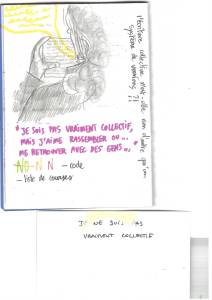 l'écriture collective n'est-elle rien d'autre qu'un
système de vampires ?!
"JE SUIS PAS VRAIMENT COLLECTIF,
MAIS J'AIME RASSEMBLER OU...
ME RETROUVER AVEC DES GENS..."
NO-N N – code
– liste de courses
JE NE SUIS PAS
VRAIMENT COLLECTIF